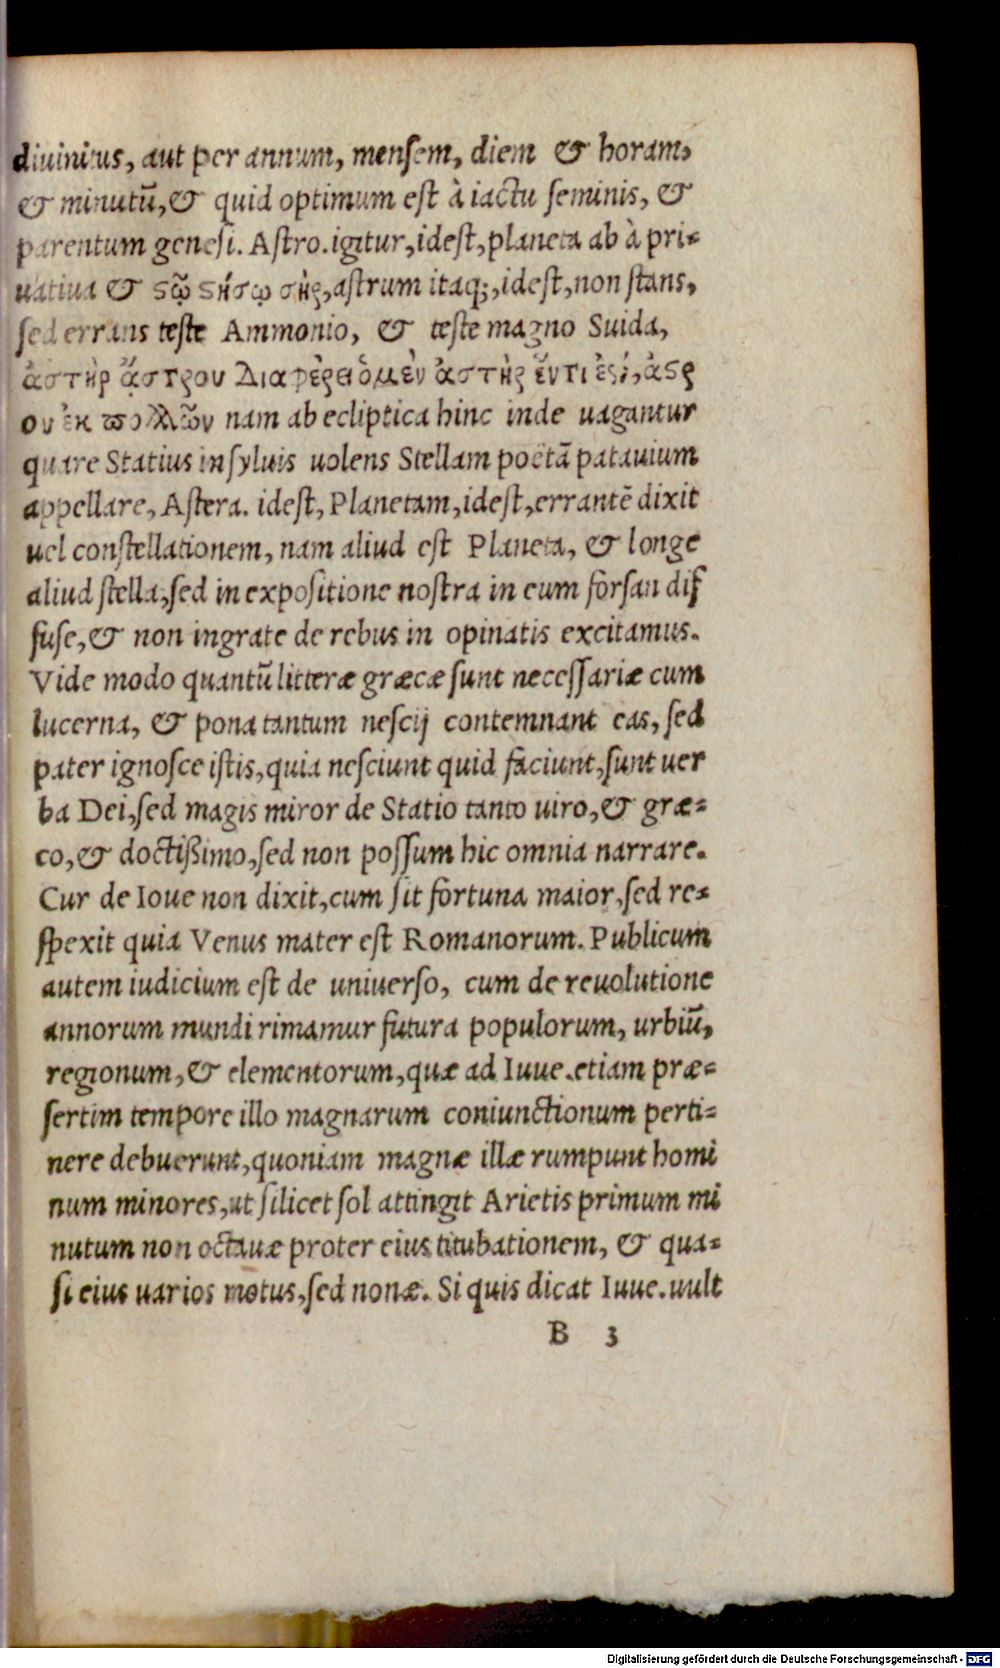 diuinitus, aut per annum, mensem, diem & horam,
& minutũ, & quid optimum est à iactu seminis, &
parentum genesi. Astro. igitur, idest, planeta ab à pri-
uatiua & ςῶ ςήσω σὴρ, astrum itaq;, idest, non stans,
sed errans teste Ammonio, & teste magno Suida,
ἀστὴρ ἄστρου διαφέρει ὁ μὲν ἀστὴρ ἕν τι ἐςί, ἀςρ
ον ἐκ πολλῶν nam ab ecliptica hinc inde uagantur
quare Statius in syluis uolens Stellam poëtã patauium
appellare, Astera. idest, Planetam, idest, errantẽ dixit
uel constellationem, nam aliud est Planeta, & longe
aliud stella, sed in expositione nostra in eum forsan dif
fuse, & non ingrate de rebus in opinatis excitamus.
Vide modo quantũ litteræ græcæ sunt necessariæ cum
lucerna, & pona tantum nescij contemnant eas, sed
pater ignosce istis, quia nesciunt quid faciunt, sunt uer
ba Dei, sed magis miror de Statio tanto uiro, & græ-
co, & doctißimo, sed non possum hic omnia narrare.
Cur de Ioue non dixit, cum sit fortuna maior, sed re-
spexit quia Venus mater est Romanorum. Publicum
autem iudicium est de uniuerso, cum de reuolutione
annorum mundi rimamur futura populorum, urbiũ,
regionum, & elementorum, quæ ad Iuue. etiam præ-
sertim tempore illo magnarum coniunctionum perti-
nere debuerunt, quoniam magnæ illæ rumpunt homi
num minores, ut silicet sol attingit Arietis primum mi
nutum non octauæ proter eius titubationem, & qua-
si eius uarios motus, sed nonæ. Si quis dicat Iuue. uult
B 3
Digitalisierung gefördert durch die Deutsche Forschungsgemeinschaft - DFG